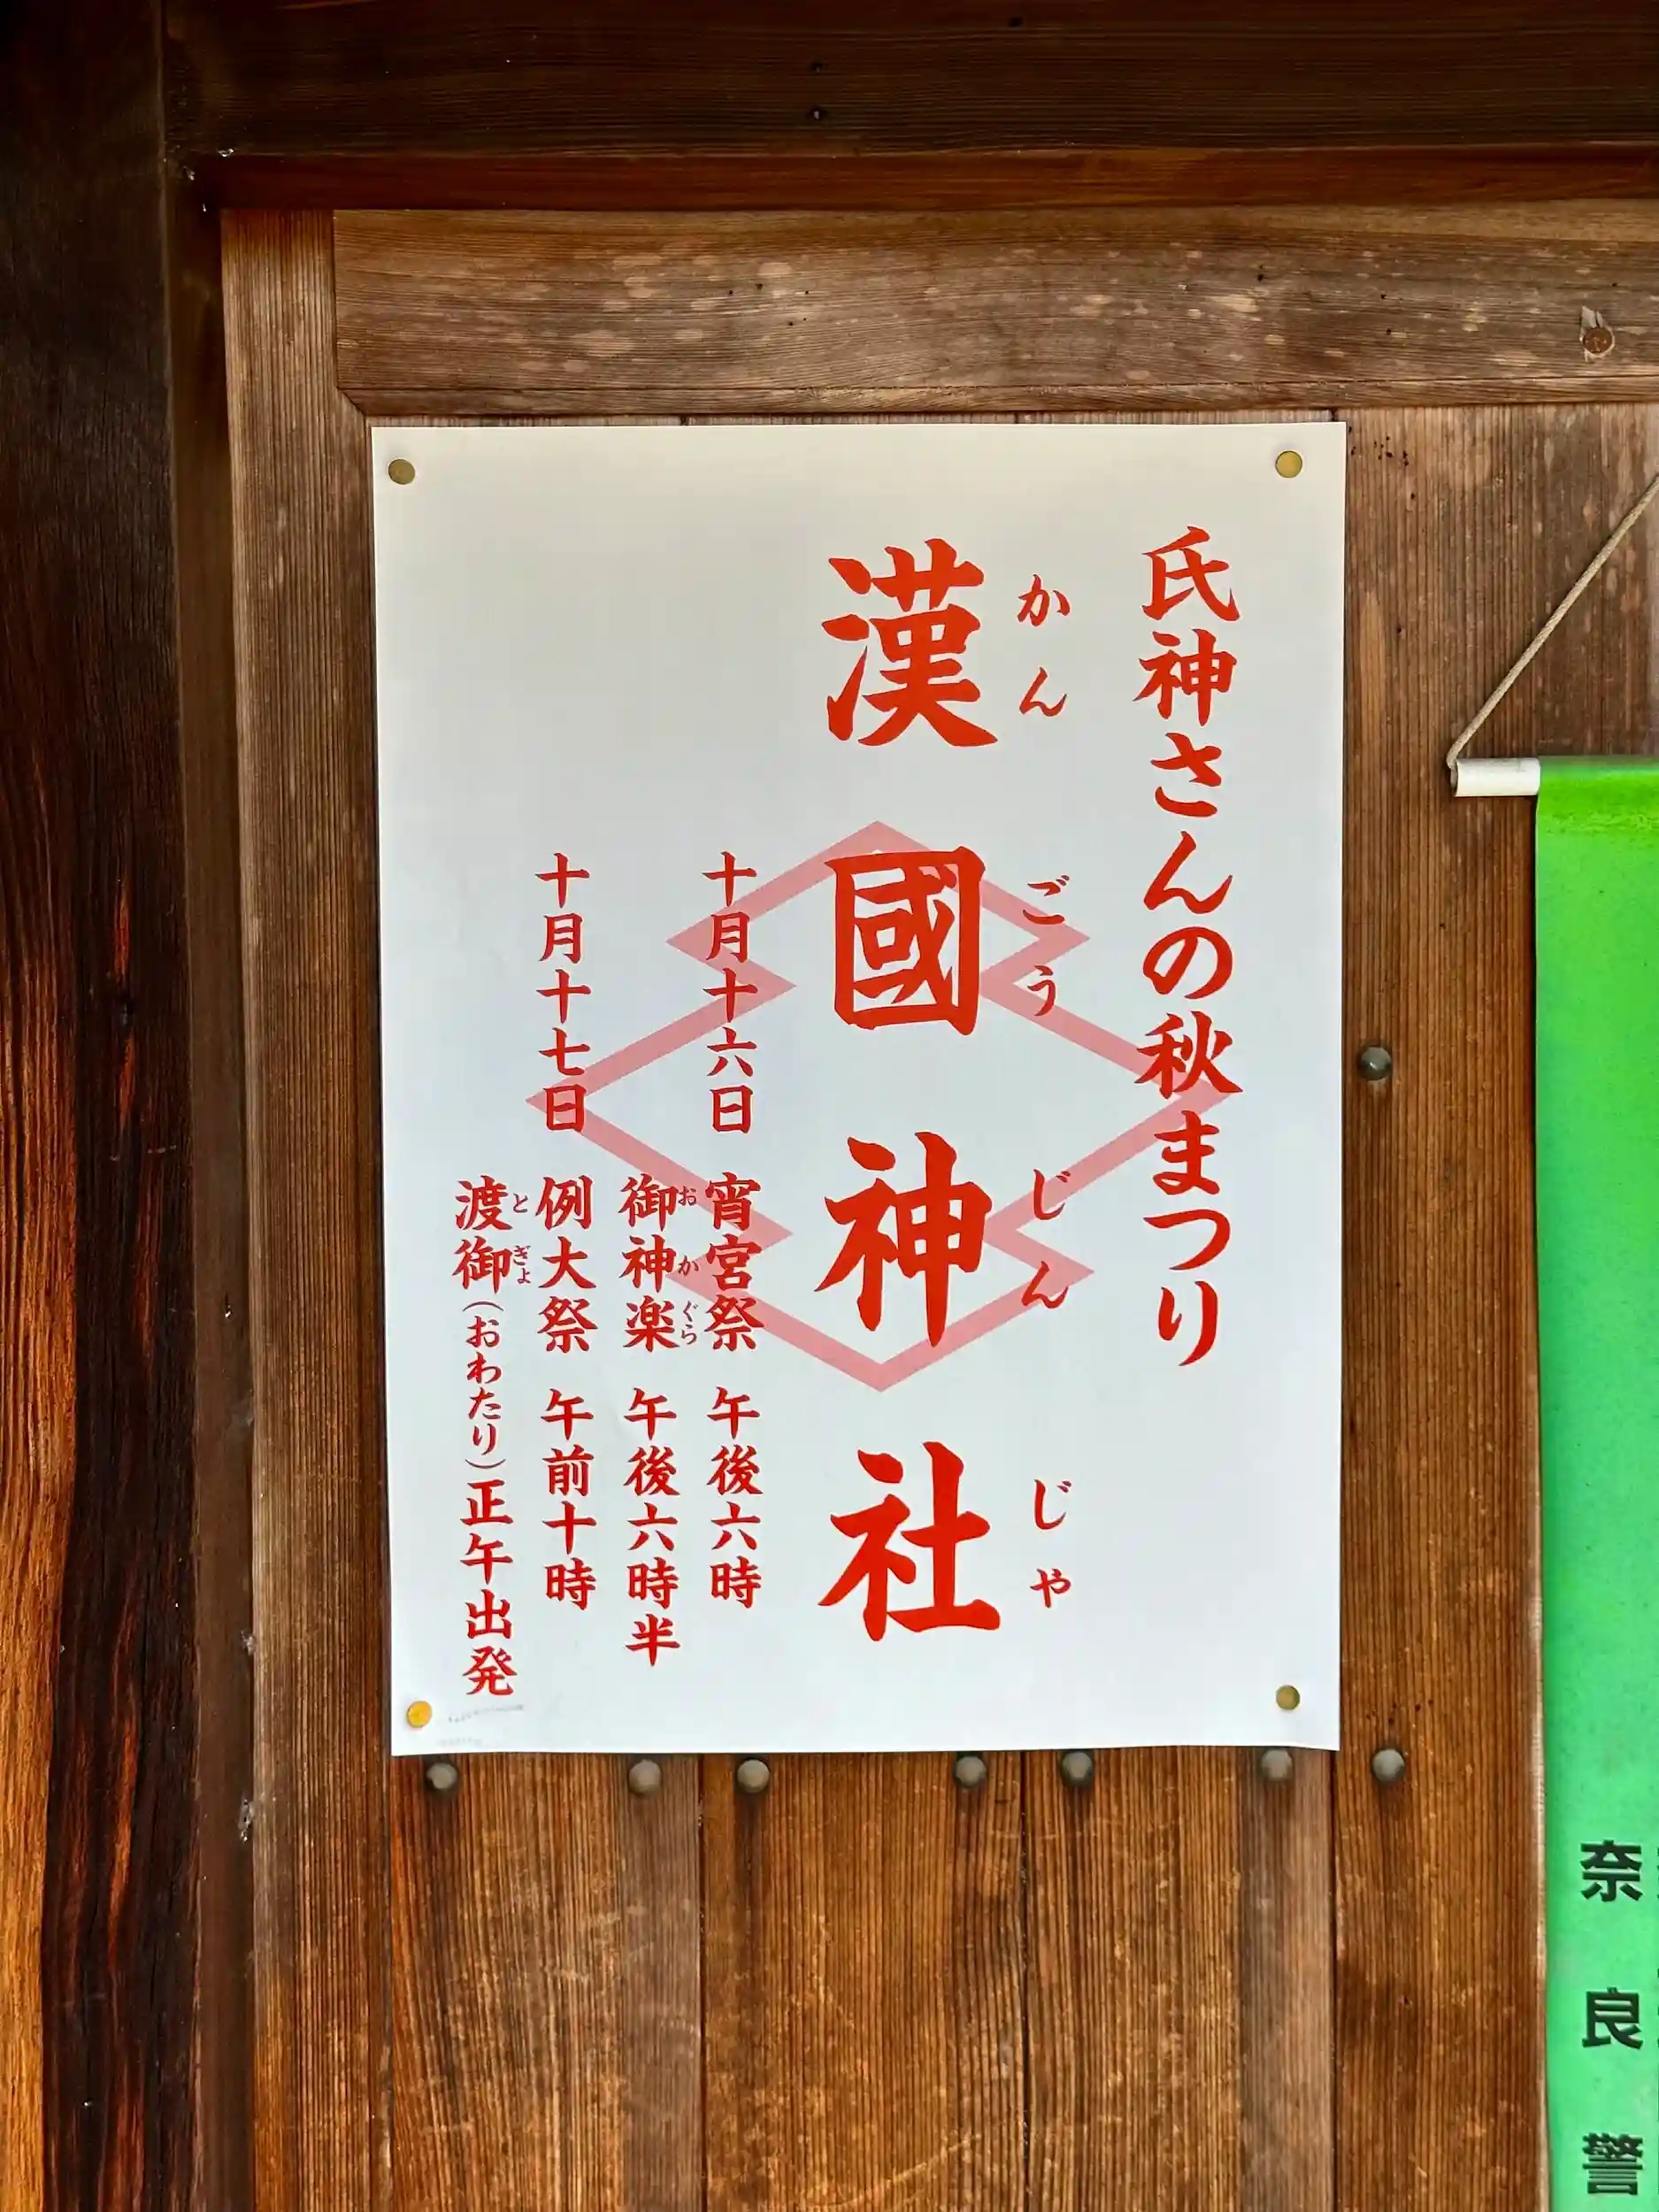 氏神さんの秋まつり
漢國神社
かんごうじんじゃ
十月十六日 宵宮祭 午後六時
御神楽 午後六時半
おかぐら
十月十七日 例大祭 午前十時
渡御(おわたり)正午出発
とぎょ
奈良警